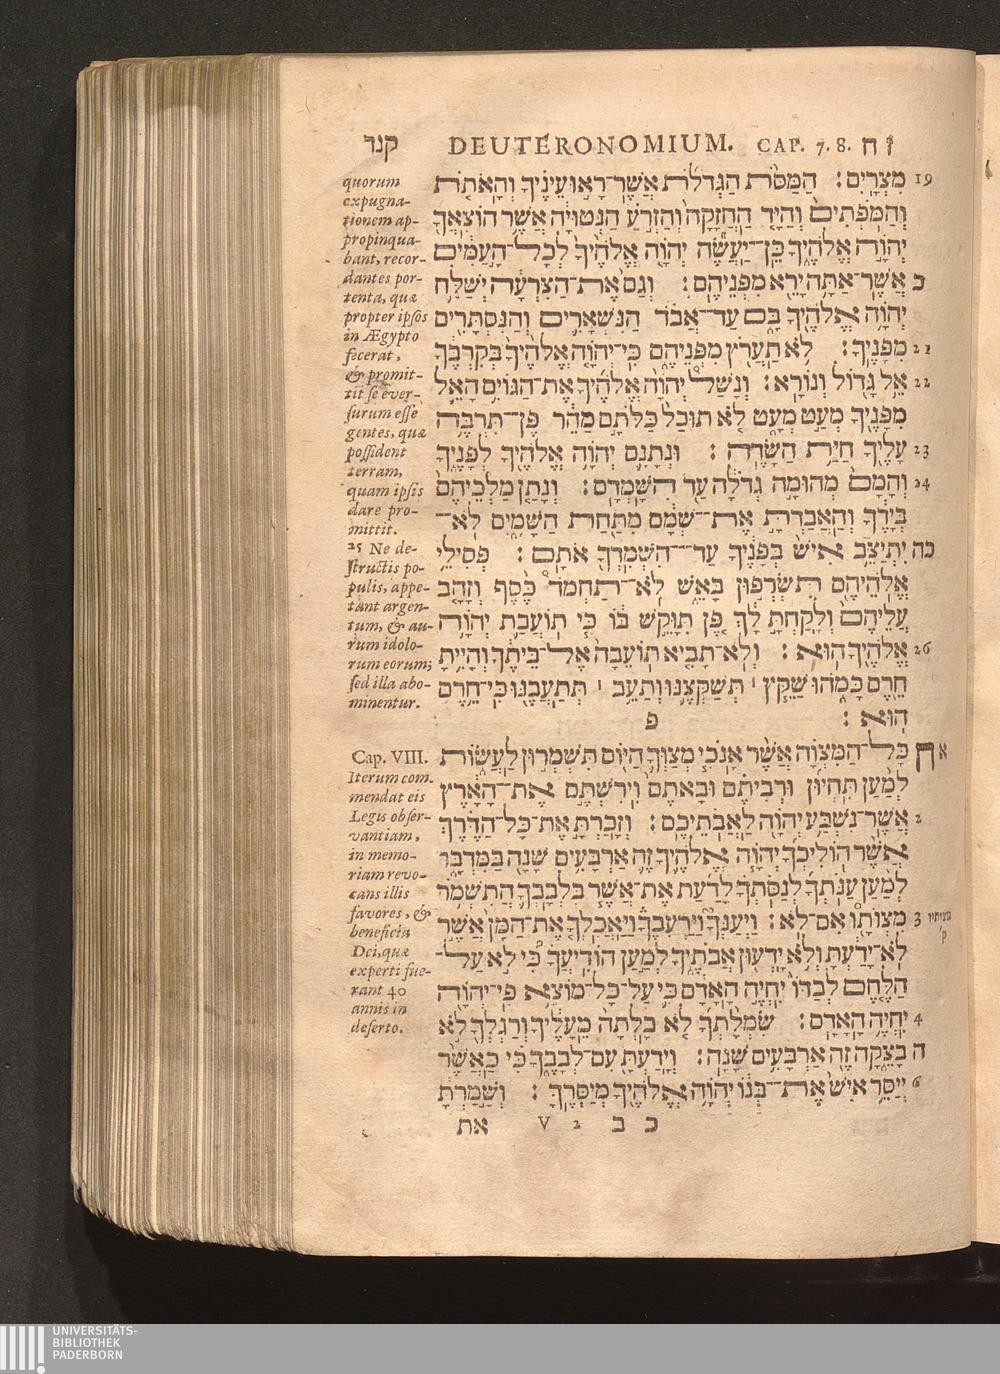 קנד DEUTERONOMIUM. CAP. 7. 8. ז ח
quorum
expugna-
tionem ap-
propinqua-
bant, recor-
dantes por-
tenta, quæ
propter ipsos
in Ægypto
fecerat,
& promit-
tit se ever-
surum esse
gentes, quæ
possident
terram,
quam ipsis
dare pro-
mittit.
25 Ne de-
structis po-
pulis, appe-
tant argen-
tum, & au-
rum idolo-
rum eorum;
sed illa abo-
minentur.
Cap. VIII.
Iterum com-
mendat eis
Legis obser-
vantiam,
in memo-
riam revo-
cans illis
favores, &
beneficia
Dei, quæ
experti fue-
rant 40
annis in
deserto.
19 מִצְרָיִם׃ הַמַּסֹּת הַגְּדֹלֹת אֲשֶׁר־רָאוּ עֵינֶיךָ וְהָאֹתֹת
וְהַמֹּפְתִים וְהַיָּד הַחֲזָקָה וְהַזְּרֹעַ הַנְּטוּיָה אֲשֶׁר הוֹצִאֲךָ
יְהֹוָה אֱלֹהֶיךָ כֵּן־יַעֲשֶׂה יְהֹוָה אֱלֹהֶיךָ לְכָל־הָעַמִּים
כ אֲשֶׁר־אַתָּה יָרֵא מִפְּנֵיהֶם׃ וְגַם אֶת־הַצִּרְעָה יְשַׁלַּח
יְהֹוָה אֱלֹהֶיךָ בָּם עַד־אֲבֹד הַנִּשְׁאָרִים וְהַנִּסְתָּרִים
21 מִפָּנֶיךָ׃ לֹא תַעֲרֹץ מִפְּנֵיהֶם כִּי־יְהֹוָה אֱלֹהֶיךָ בְּקִרְבֶּךָ
22 אֵל גָּדוֹל וְנוֹרָא׃ וְנָשַׁל יְהֹוָה אֱלֹהֶיךָ אֶת־הַגּוֹיִם הָאֵל
מִפָּנֶיךָ מְעַט מְעָט לֹא תוּכַל כַּלֹּתָם מַהֵר פֶּן־תִּרְבֶּה
23 עָלֶיךָ חַיַּת הַשָּׂדֶה׃ וּנְתָנָם יְהֹוָה אֱלֹהֶיךָ לְפָנֶיךָ
24 וְהָמָם מְהוּמָה גְדֹלָה עַד הִשָּׁמְדָם׃ וְנָתַן מַלְכֵיהֶם
בְּיָדֶךָ וְהַאֲבַדְתָּ אֶת־שְׁמָם מִתַּחַת הַשָּׁמָיִם לֹא־
כה יִתְיַצֵּב אִישׁ בְּפָנֶיךָ עַד־הִשְׁמִדְךָ אֹתָם׃ פְּסִילֵי
אֱלֹהֵיהֶם תִּשְׂרְפוּן בָּאֵשׁ לֹא־תַחְמֹד כֶּסֶף וְזָהָב
עֲלֵיהֶם וְלָקַחְתָּ לָךְ פֶּן תִּוָּקֵשׁ בּוֹ כִּי תוֹעֲבַת יְהֹוָה
26 אֱלֹהֶיךָ הוּא׃ וְלֹא־תָבִיא תוֹעֵבָה אֶל־בֵּיתֶךָ וְהָיִיתָ
חֵרֶם כָּמֹהוּ שַׁקֵּץ ׀ תְּשַׁקְּצֶנּוּ וְתַעֵב ׀ תְּתַעֲבֶנּוּ כִּי־חֵרֶם
הוּא׃ פ
א ח כָּל־הַמִּצְוָה אֲשֶׁר אָנֹכִי מְצַוְּךָ הַיּוֹם תִּשְׁמְרוּן לַעֲשׂוֹת
לְמַעַן תִּחְיוּן וּרְבִיתֶם וּבָאתֶם וִירִשְׁתֶּם אֶת־הָאָרֶץ
2 אֲשֶׁר־נִשְׁבַּע יְהֹוָה לַאֲבֹתֵיכֶם׃ וְזָכַרְתָּ אֶת־כָּל־הַדֶּרֶךְ
אֲשֶׁר הוֹלִיכְךָ יְהֹוָה אֱלֹהֶיךָ זֶה אַרְבָּעִים שָׁנָה בַּמִּדְבָּר
לְמַעַן עַנֹּתְךָ לְנַסֹּתְךָ לָדַעַת אֶת־אֲשֶׁר בִּלְבָבְךָ הֲתִשְׁמֹר
מצותיו ק׳ 3 מִצְוֹתָו אִם־לֹא׃ וַיְעַנְּךָ וַיַּרְעִבֶךָ וַיַּאֲכִלְךָ אֶת־הַמָּן אֲשֶׁר
לֹא־יָדַעְתָּ וְלֹא יָדְעוּן אֲבֹתֶיךָ לְמַעַן הוֹדִיעֲךָ כִּי לֹא עַל־
הַלֶּחֶם לְבַדּוֹ יִחְיֶה הָאָדָם כִּי עַל־כָּל־מוֹצָא פִי־יְהֹוָה
4 יִחְיֶה הָאָדָם׃ שִׂמְלָתְךָ לֹא בָלְתָה מֵעָלֶיךָ וְרַגְלְךָ לֹא
ה בָצֵקָה זֶה אַרְבָּעִים שָׁנָה׃ וְיָדַעְתָּ עִם־לְבָבֶךָ כִּי כַּאֲשֶׁר
6 יְיַסֵּר אִישׁ אֶת־בְּנוֹ יְהֹוָה אֱלֹהֶיךָ מְיַסְּרֶךָּ׃ וְשָׁמַרְתָּ
כ ב V 2 את
UNIVERSITÄTS-
BIBLIOTHEK
PADERBORN